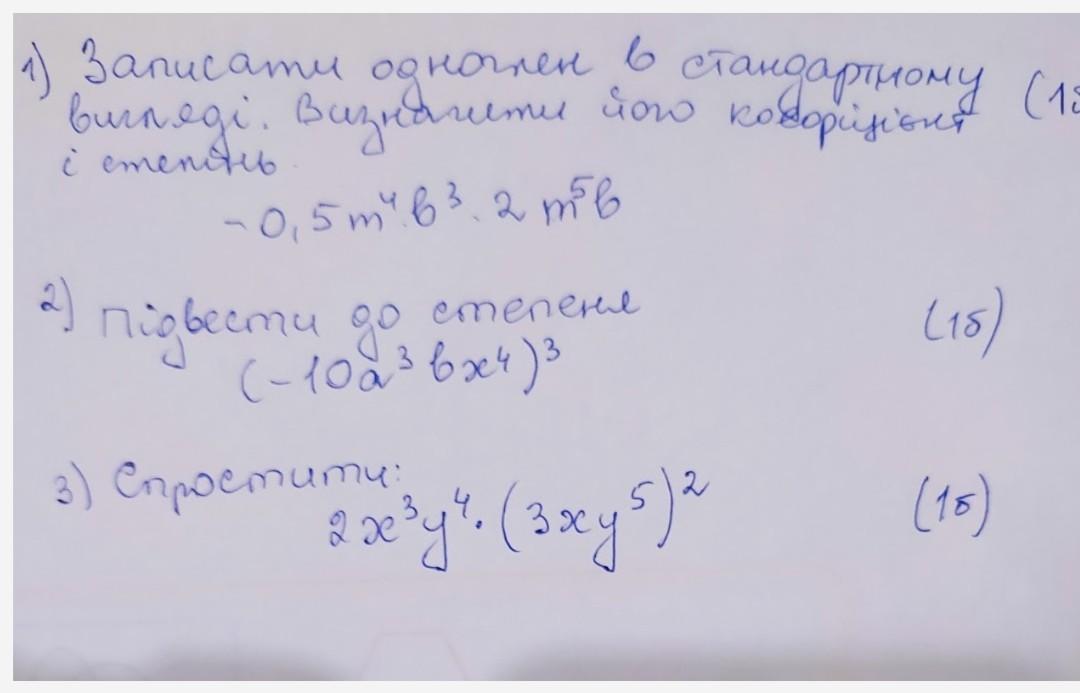 1) Записати одночлен в стандартному
вигляді. Визначити його коефіцієнт (1б
і степінь.
-0,5m⁴b³·2m⁵b
2) Підвести до степеня (1б)
(-10a³bx⁴)³
3) Спростити:
2x³y⁴·(3xy⁵)² (1б)